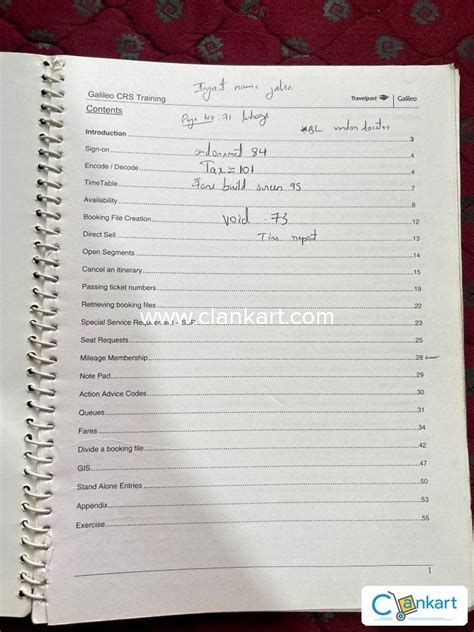 Galileo CRS Training
name
Travelport Galileo
Contents
Page No: 71
*BL vendor locator
Introduction 3
Sign-on 84 4
Encode / Decode Tax = 101 4
TimeTable Fare build screen 95 7
Availability 8
Booking File Creation void 73 12
Direct Sell 13
Open Segments 14
Cancel an itinerary 15
Passing ticket numbers 19
Retrieving booking files 22
www.clankart.com
Special Service Requirement - SSR 23
Seat Requests 25
Mileage Membership 28
Note Pad 29
Action Advice Codes 30
Queues 31
Fares 34
Divide a booking file 42
GIS 47
Stand Alone Entries 50
Appendix 53
Exercise 55
1
Clankart